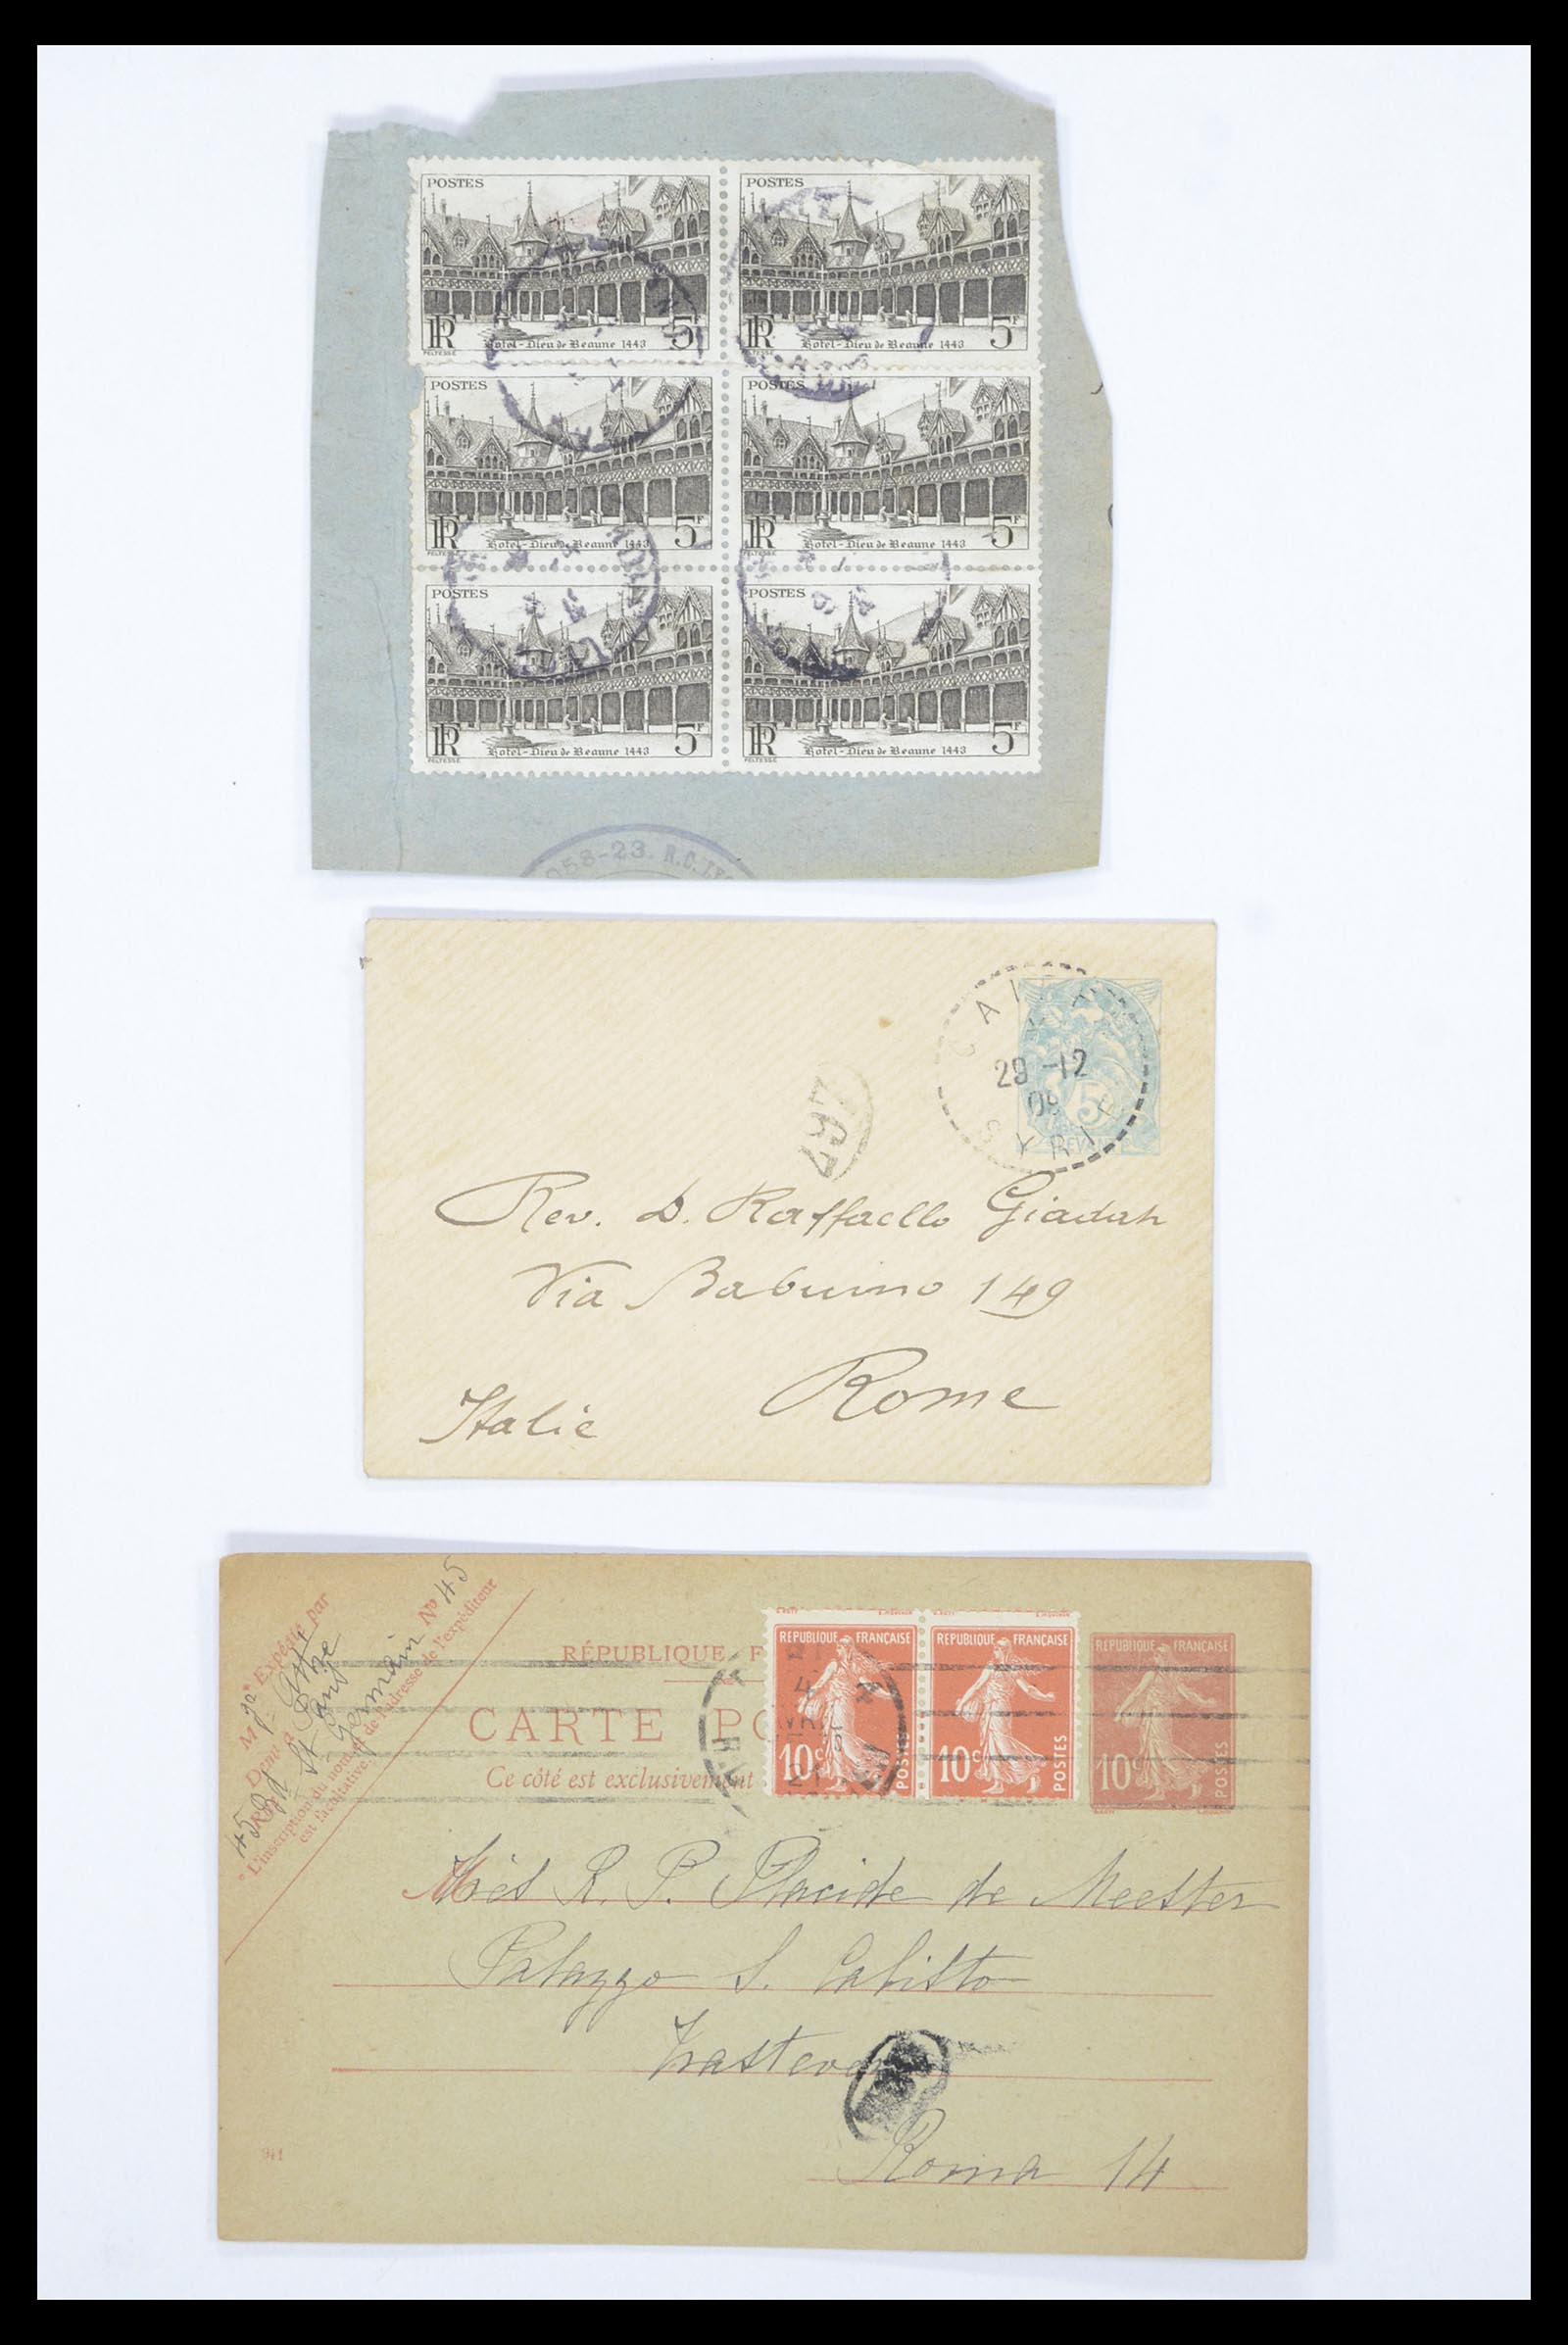 POSTES POSTES
RF Hotel-Dieu de Beaune 1443 5F RF Hotel-Dieu de Beaune 1443 5F
PELTESSE PELTESSE
POSTES POSTES
RF Hotel-Dieu de Beaune 1443 5F RF Hotel-Dieu de Beaune 1443 5F
PELTESSE PELTESSE
POSTES POSTES
RF Hotel-Dieu de Beaune 1443 5F RF Hotel-Dieu de Beaune 1443 5F
PELTESSE PELTESSE
058-23. R.C.
29-12
09
SYRIE
5
Rev. D. Raffaello Giadah
Via Babuino 149
Rome
Italie
Expédié par
45 Bd St Germain No 45
L'inscription du nom et de l'adresse de l'expéditeur
est facultative.
RÉPUBLIQUE F
CARTE PO
Ce côté est exclusivement
REPUBLIQUE FRANÇAISE REPUBLIQUE FRANÇAISE REPUBLIQUE FRANÇAISE
10c POSTES 10c POSTES 10c POSTES
4
21
R. P. Placide de Meester
Palazzo S. Calisto
Trastevere
Roma 14
941